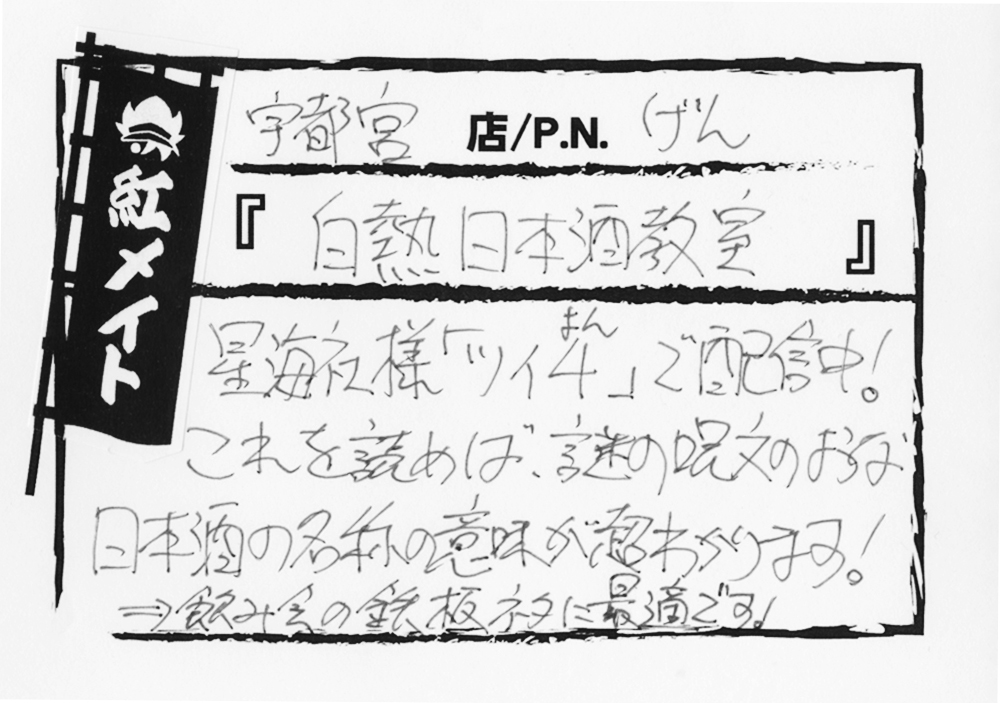 紅メイト
宇都宮 店/P.N. げん
『白熱日本酒教室』
まん
星海社様「ツイ4」で配信中!
これを読めば、謎の呪文のような
日本酒の名称の意味が超わかります!
⇒飲み会の鉄板ネタに最適です!